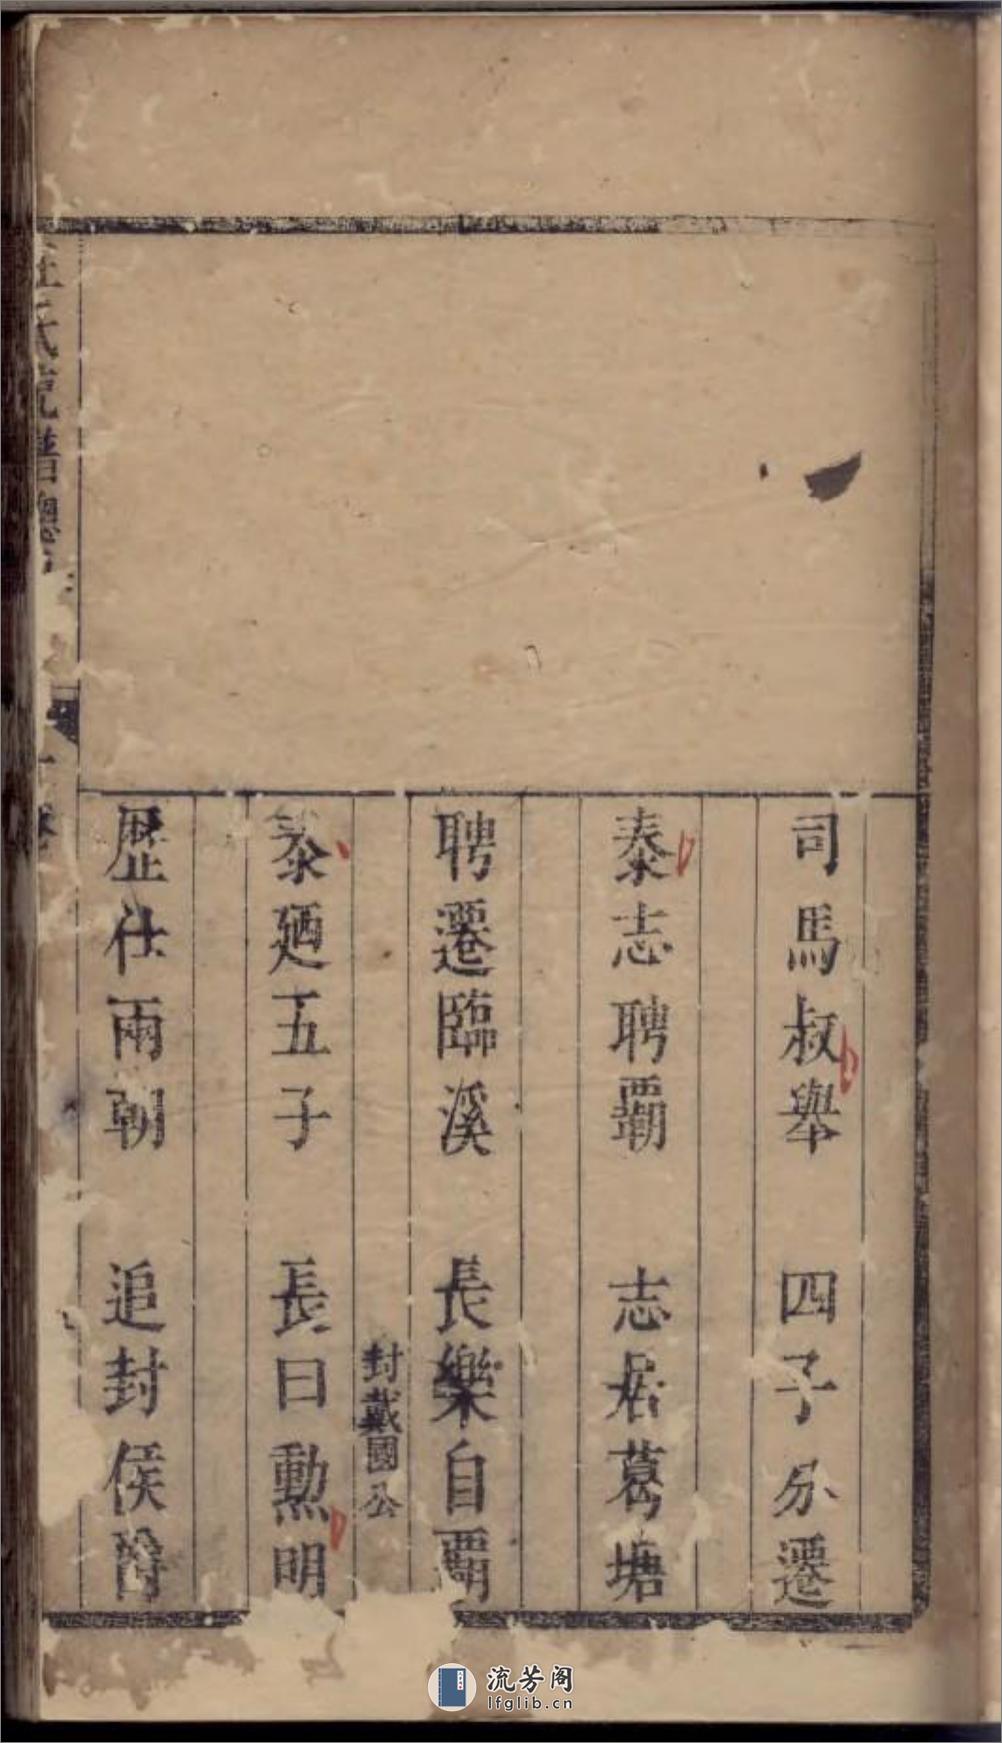 司馬叔舉 四子分遷
泰志聘霸 志居葛塘
聘遷臨溪 長樂自霸
封戴國公
泰廼五子 長曰勲明
歷仕兩朝 追封侯爵
氏統譜總
流芳阁
lfglib.cn